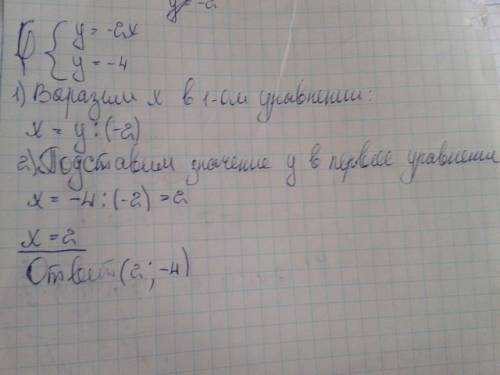 y = -2
{ y = -2x
y = -4
1) Выразим x в 1-ом уравнении:
x = y : (-2)
2) Подставим значение y в первое уравнение
x = -4 : (-2) = 2
x = 2
Ответ: (2 ; -4)